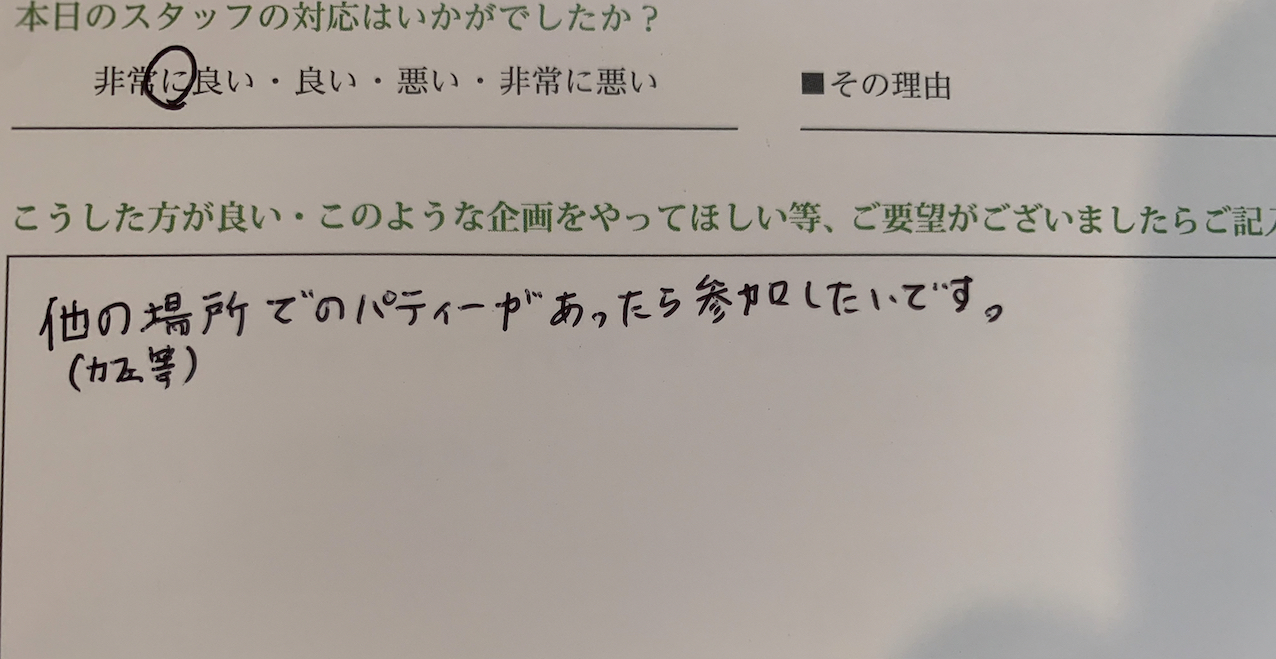 本日のスタッフの対応はいかがでしたか？
非常に良い・良い・悪い・非常に悪い
■その理由
こうした方が良い・このような企画をやってほしい等、ご要望がございましたらご記入
他の場所でのパティーがあったら参加したいです。
(カフェ等)